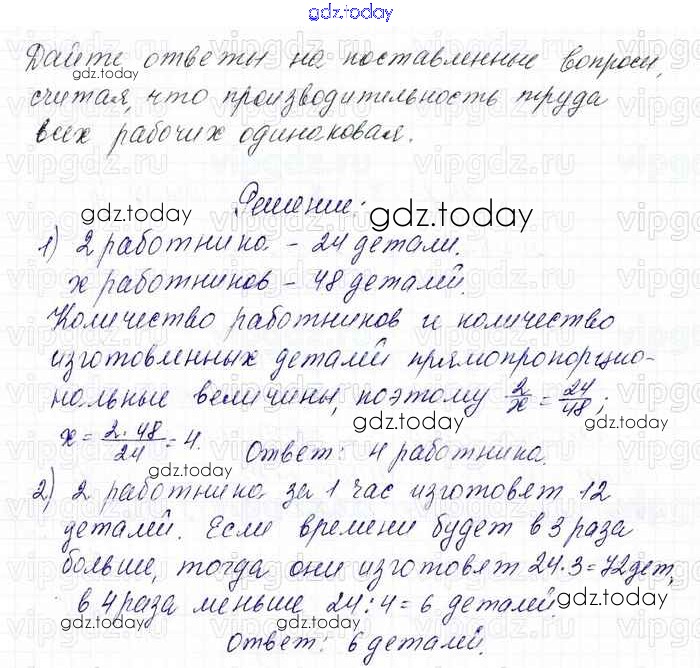 gdz.today
Дайте ответы на поставленные вопросы,
считая, что производительность труда
всех рабочих одинаковая.
Решение:
1) 2 работника - 24 детали.
x работников - 48 деталей.
Количество работников и количество
изготовленных деталей прямопропорцио-
нальные величины, поэтому 2/x = 24/48;
x = 2·48/24 = 4. Ответ: 4 работника.
2) 2 работника за 1 час изготовят 12
деталей. Если времени будет в 3 раза
больше, тогда они изготовят 24·3=72дет,
в 4 раза меньше 24:4=6 деталей.
Ответ: 6 деталей.